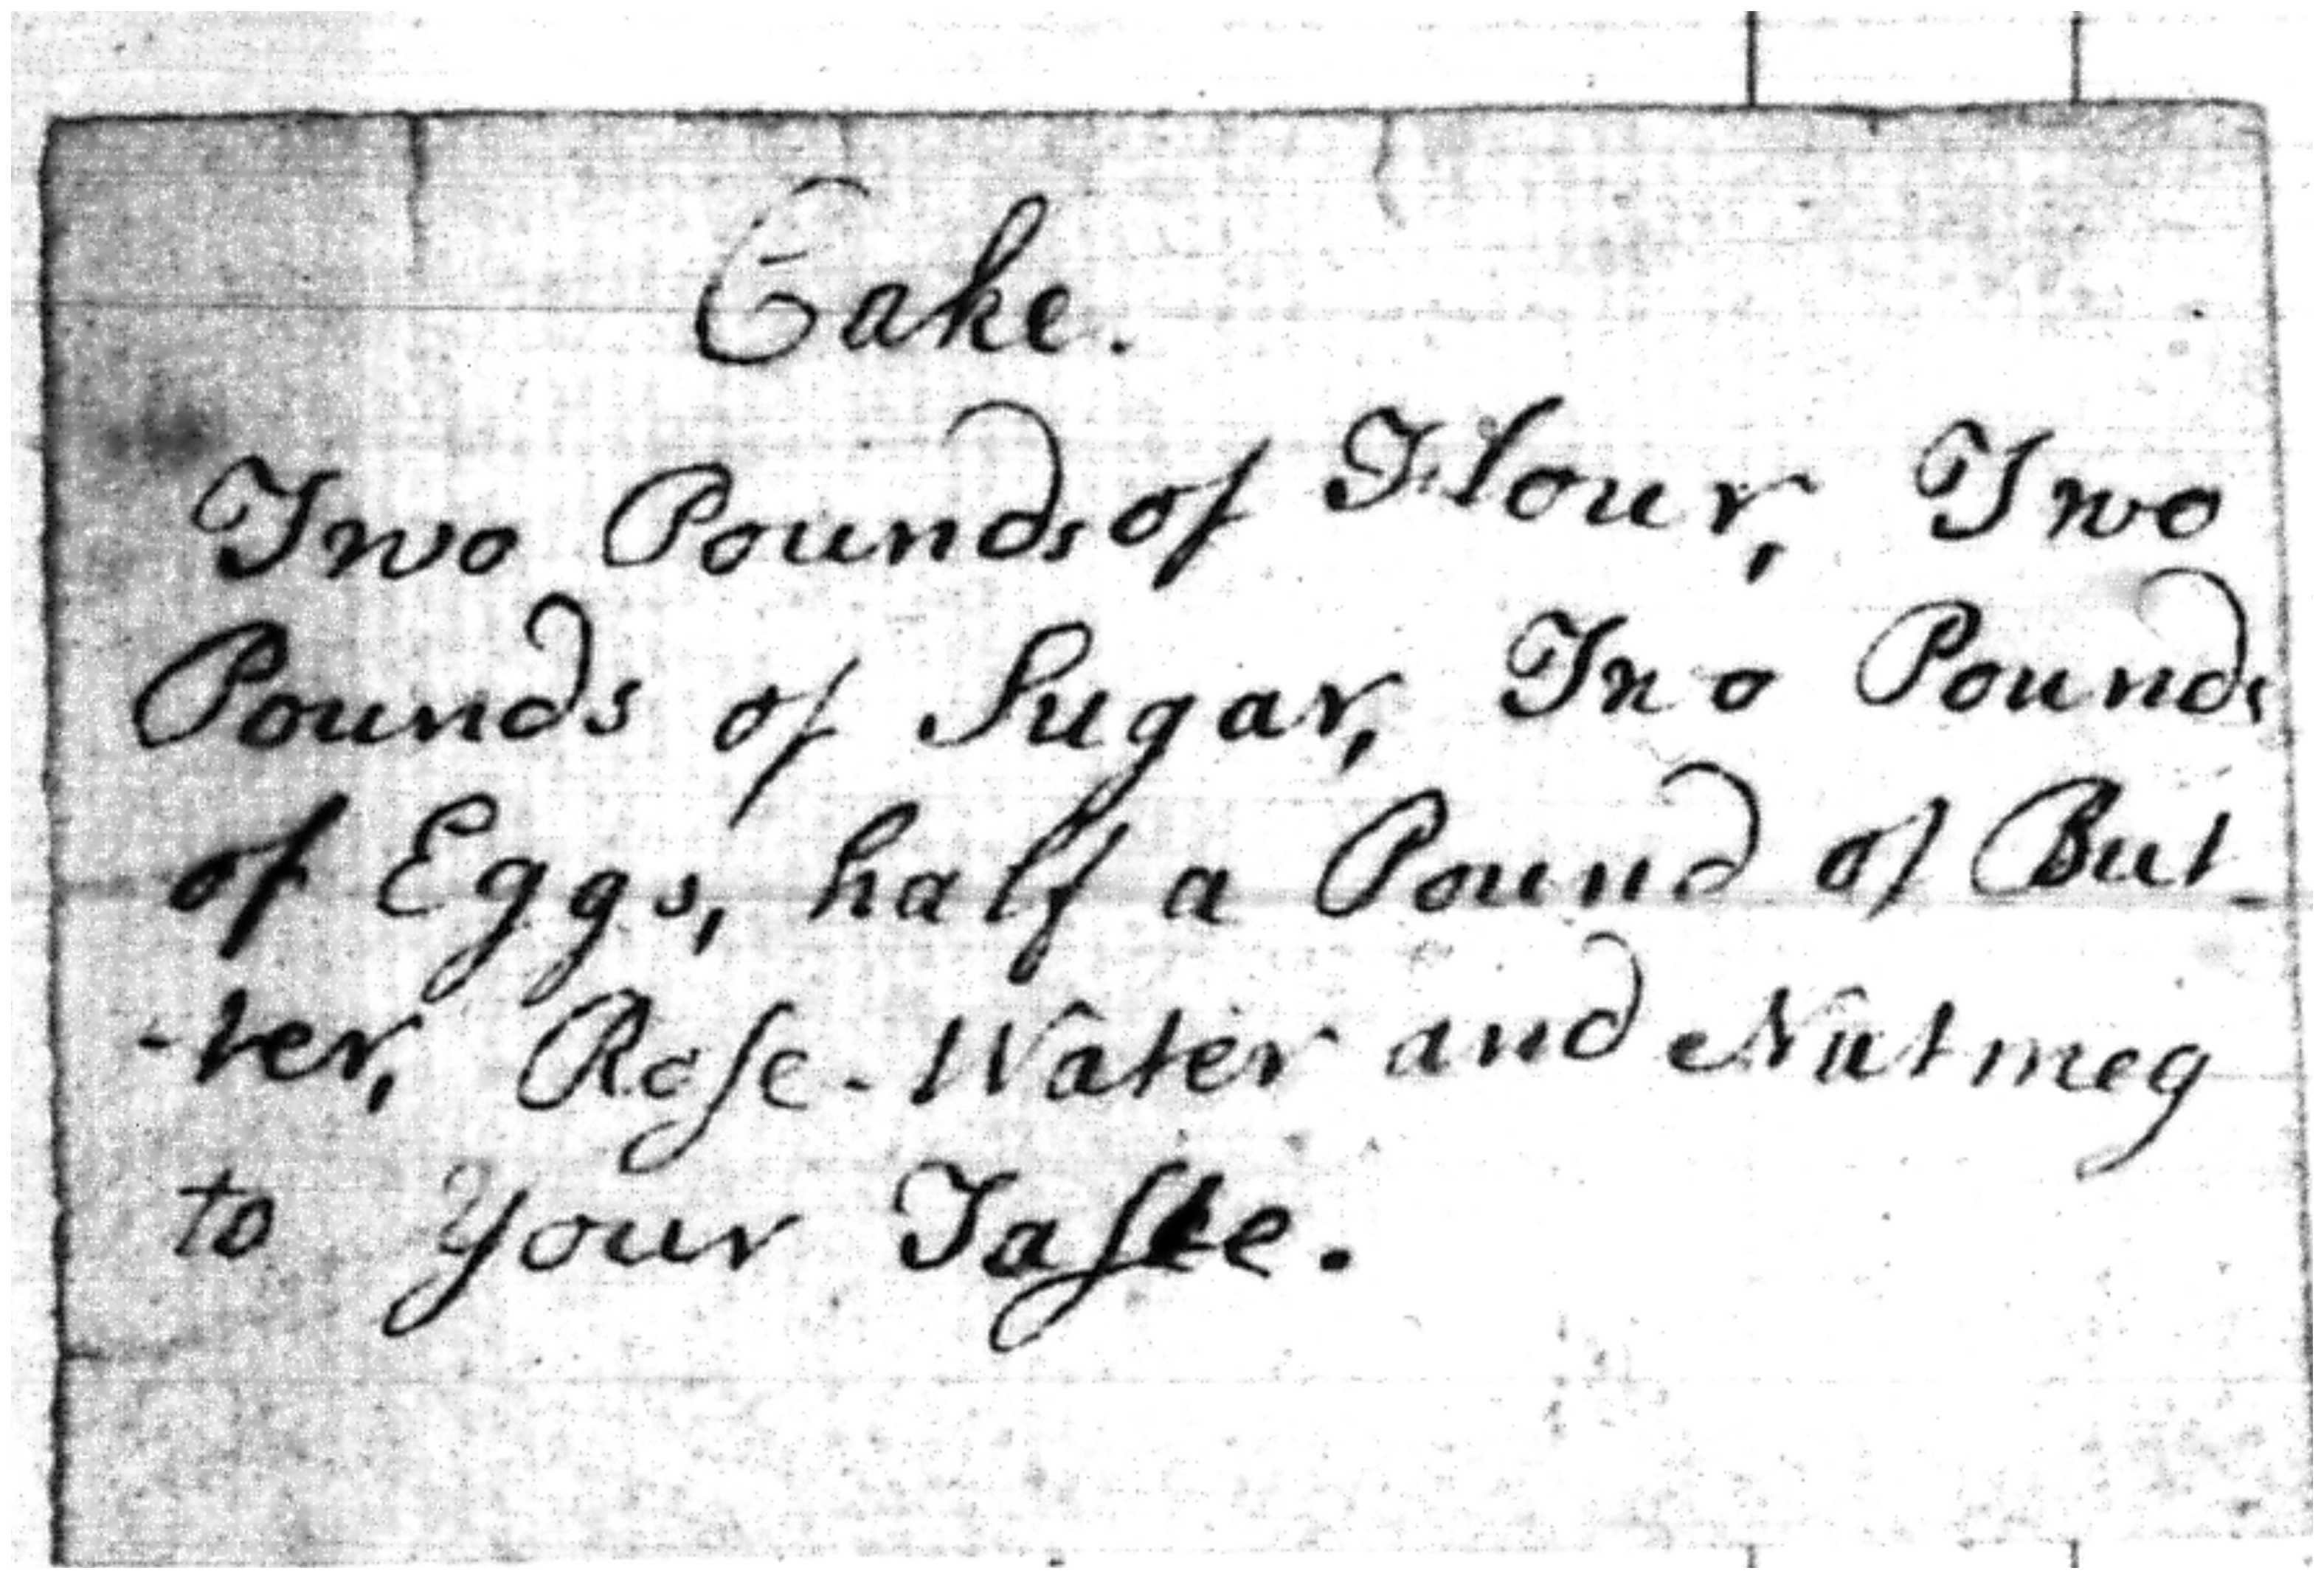 Cake.
Two Pounds of Flour, Two
Pounds of Sugar, Two Pounds
of Eggs, half a Pound of But-
-ter, Roſe-Water and Nutmeg
to Your Taſte.